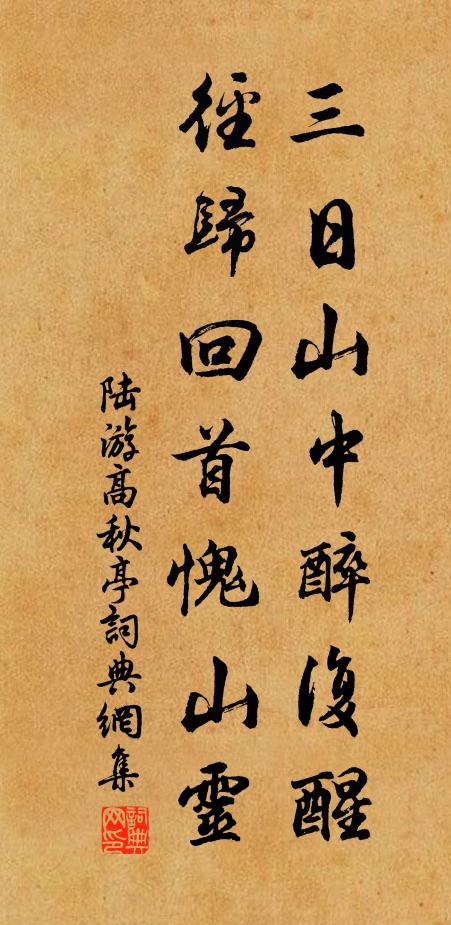 三日山中醉復醒
徑歸回首愧山靈
陸游高秋亭詞典網集
詞典网印